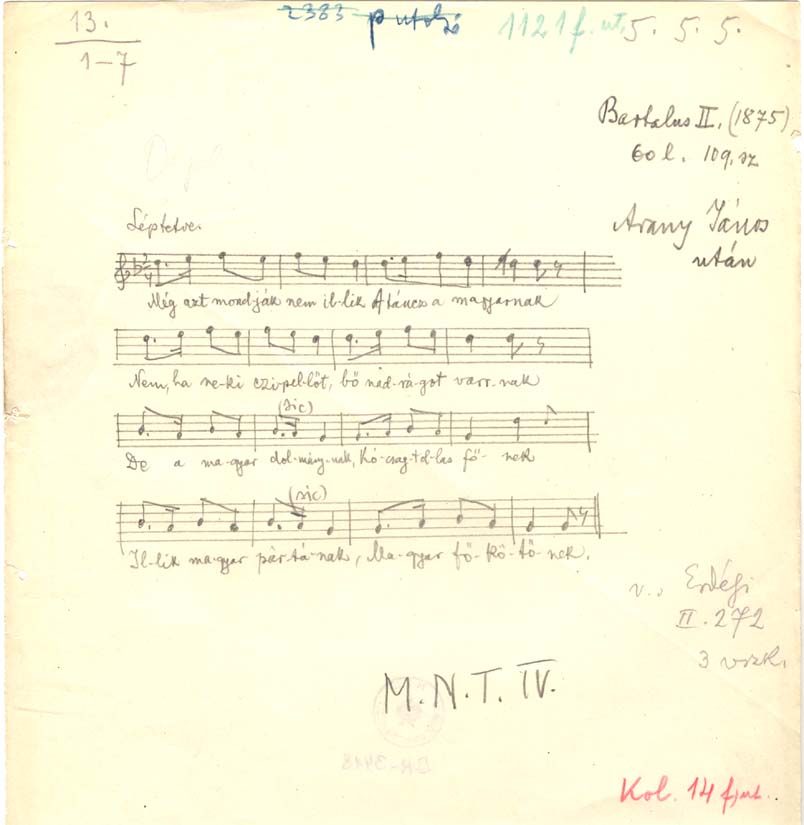 13.
1-7
2383 p utolsó
1121 f. ut.
5. 5. 5.
Bartalus II. (1875)
60 l. 109. sz
Arany János
után
Léptetve.
Még azt mondják nem il-lik A táncz a magyarnak
Nem, ha ne-ki czi-pel-lőt, bő nad-rá-got varr-nak
(sic)
De a ma-gyar dol-mány-nak, Kó-csag-tol-las fő-nek
(sic)
Il-lik ma-gyar pár-tá-nak, Ma-gyar fő-kö-tő-nek.
II. 272
3 vszk.
M.N.T. IV.
Kol. 14